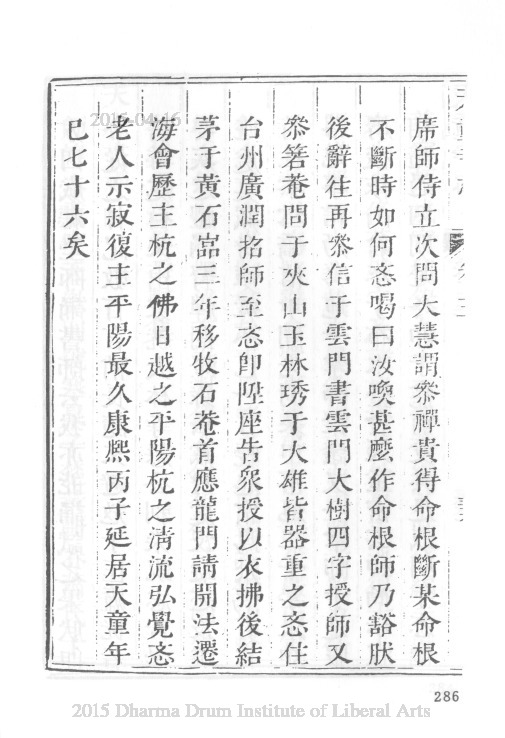 席師侍立次問大慧謂叅禪貴得命根斷某命根
不斷時如何忞喝曰汝喚甚麼作命根師乃豁狀
後辭往再叅信于雲門書雲門大樹四字授師又
叅箬菴問于夾山玉林琇于大雄皆器重之忞住
台州廣潤招師至忞卽陞座告衆授以衣拂後結
茅于黃石嵓三年移牧石菴首應龍門請開法遷
海會歷主杭之佛日越之平陽杭之清流弘覺忞
老人示寂復主平陽最久康熈丙子延居天童年
巳七十六矣
2015-04-16
286
2015 Dharma Drum Institute of Liberal Arts